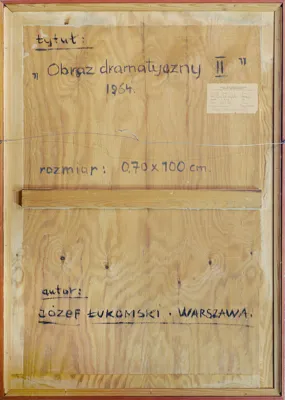 tytuł:
"Obraz dramatyczny II"
1964.
rozmiar: 0,70 x 100 cm.
autor:
JÓZEF ŁUKOMSKI . WARSZAWA.